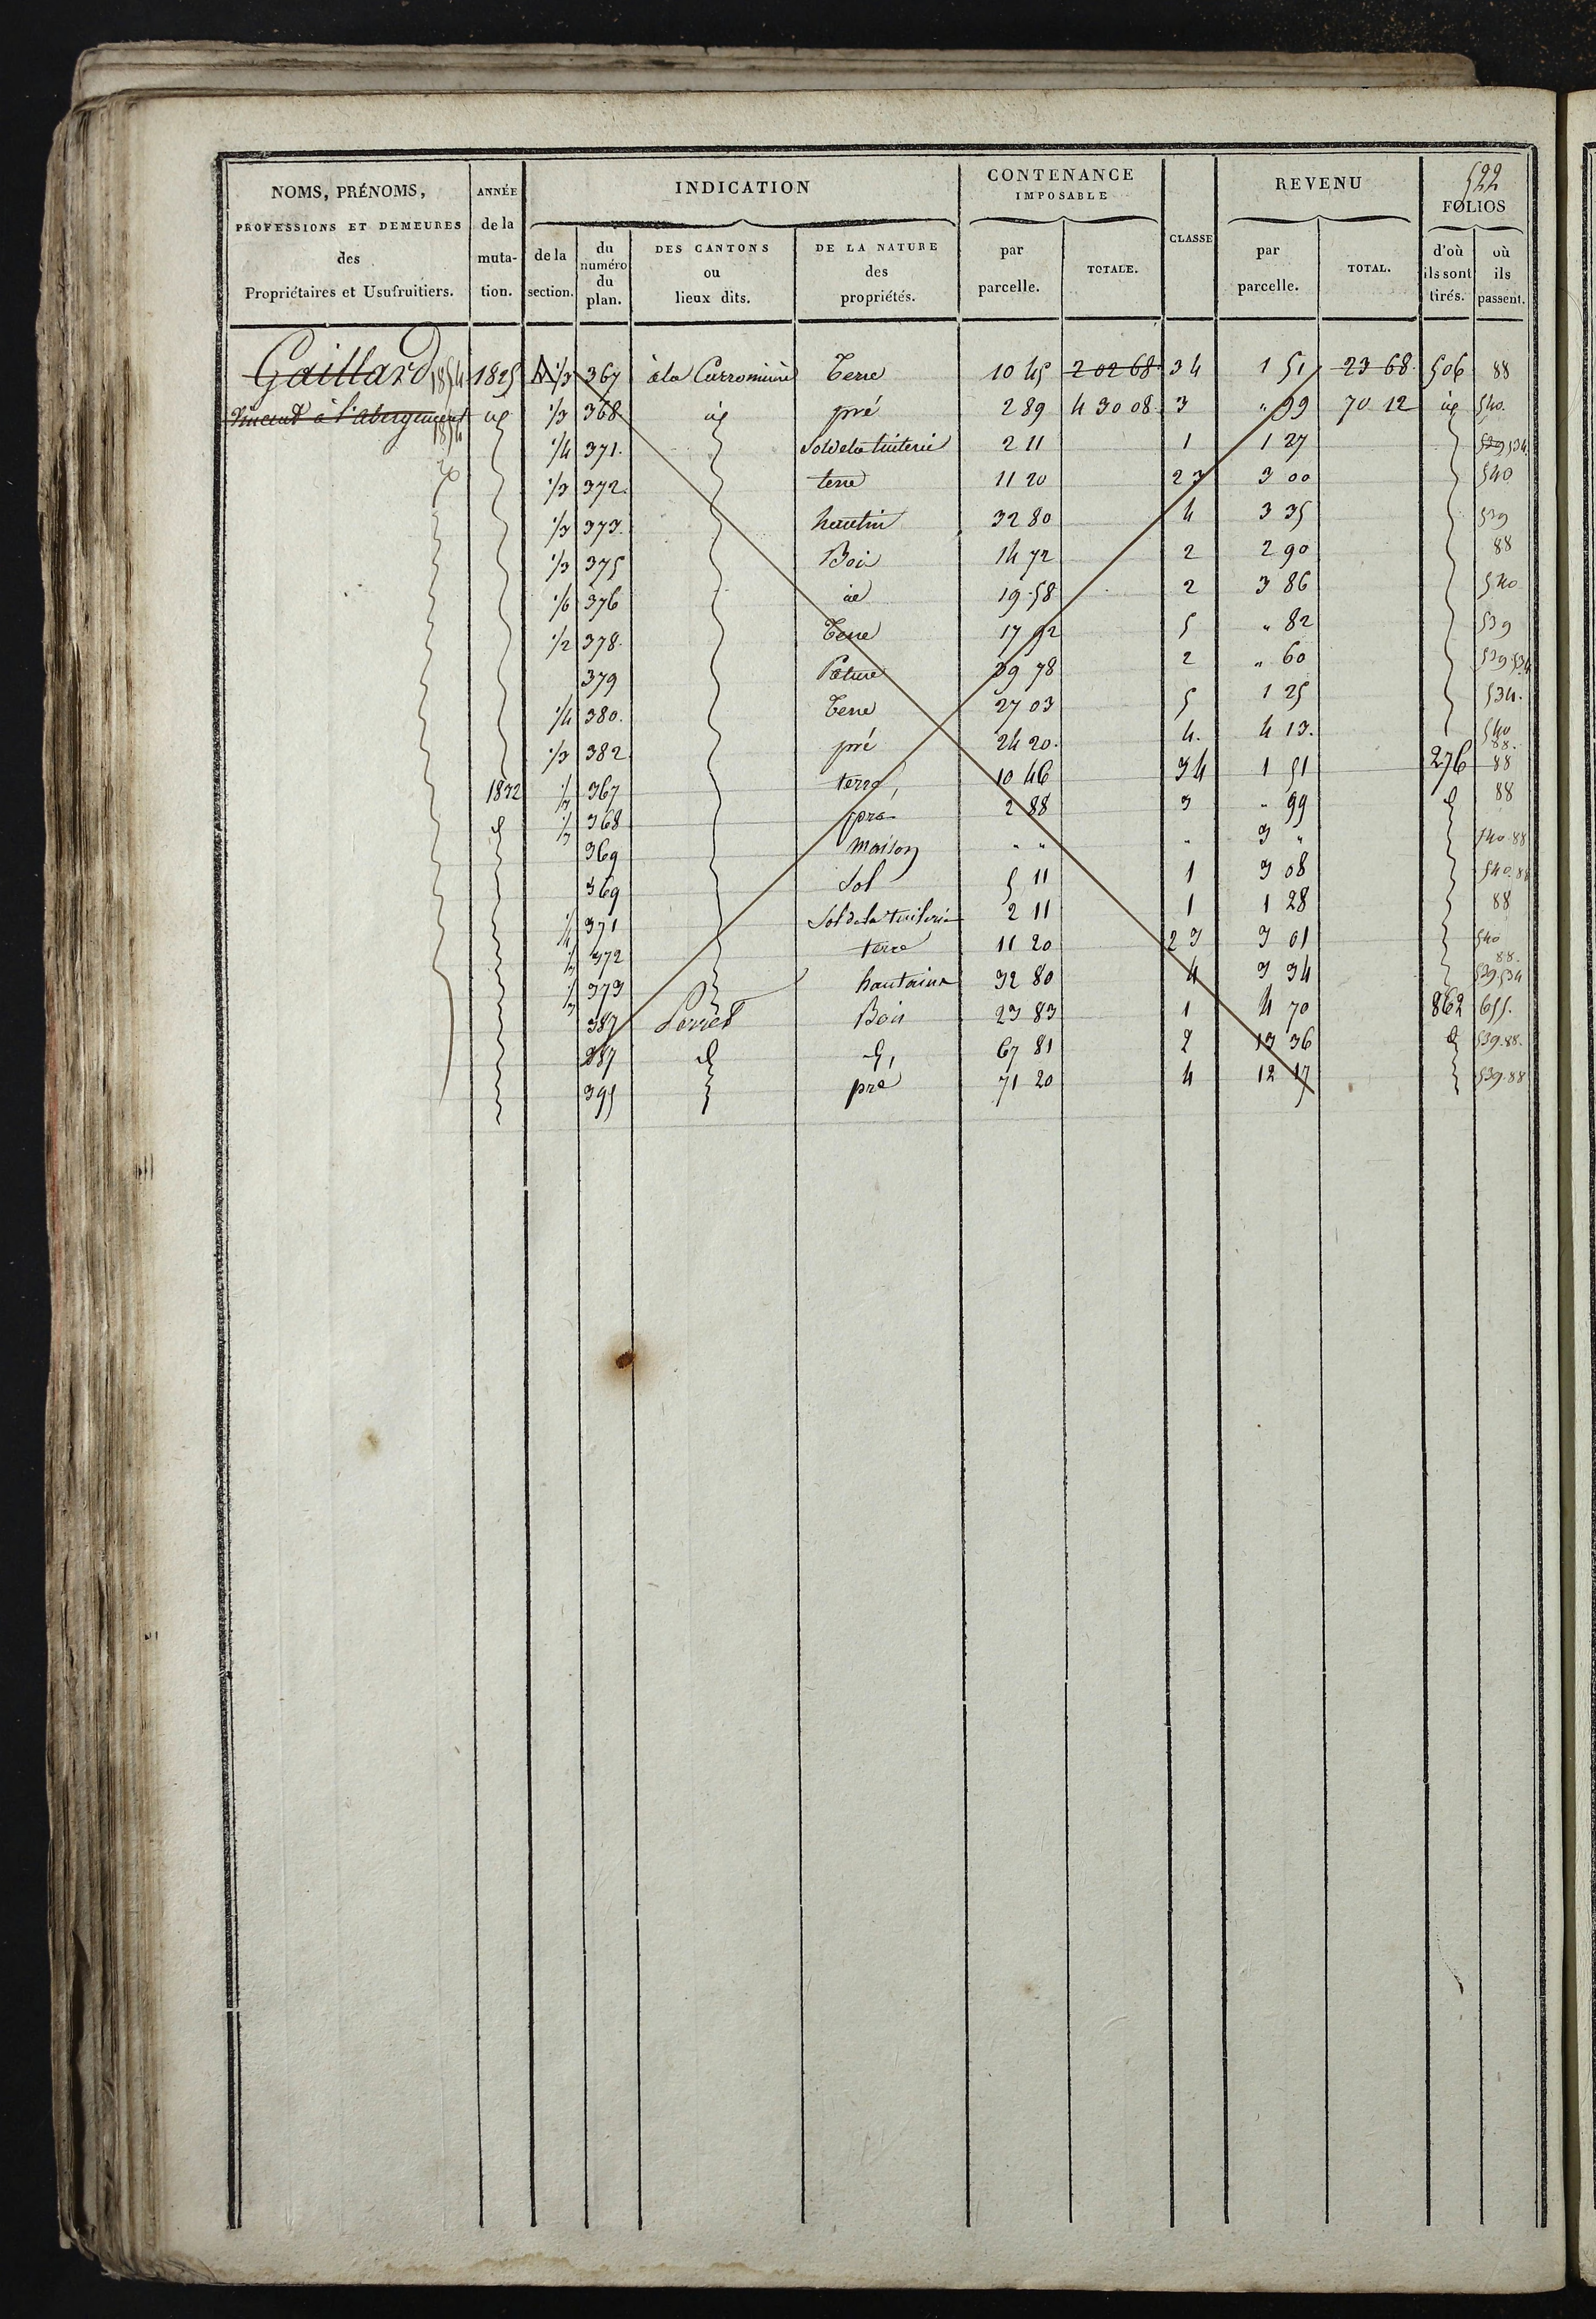 522
NOMS, PRÉNOMS, PROFESSIONS ET DEMEURES des Propriétaires et Usufruitiers.
ANNÉE de la muta- tion.
INDICATION
de la section.
du numéro du plan.
DES CANTONS ou lieux dits.
DE LA NATURE des propriétés.
CONTENANCE IMPOSABLE
par parcelle.
TOTALE.
CLASSE
REVENU
par parcelle.
TOTAL.
FOLIOS
d'où ils sont tirés.
où ils passent.
Gaillard 1854 1825 1/3 367 à la Terre 10 45 2 02 68 34 1 51 23 68 506 88
Vincent à l'abergement id 1/3 368 id pré 2 89 4 30 08 3 " 99 70 12 id 540
1/4 371. Sol de la tuilerie 2 11 1 1 27 529 534
1/3 372. terre 11 20 23 3 00 540
1/3 373. hautin 32 80 4 3 35 539
1/3 375 Bois 14 72 2 2 90 88
1/6 376 id 19 58 2 3 86 540
1/2 378. Terre 17 92 5 " 82 539
379 Pature 39 78 2 " 60 539 534
1/4 380. Terre 27 03 5 1 25 534.
1/3 382 pré 24 20. 4. 4 13. 540 88.
1832 1/3 367 terre 10 46 34 1 51 276 88
d 1/3 368 pré 2 88 3 " 99 d 88
369 maison " " " 3 " 540.88
369 Sol 5 11 1 3 08 540.88
1/4 371 Sol de la tuilerie 2 11 1 1 28 88
1/3 372 terre 11 20 23 3 01 540 88.
1/3 373 hautains 32 80 4 3 34 539 534
387 Perret Bois 23 83 1 4 70 862 655.
387 d d, 67 81 2 13 36 d 539.88.
395 pré 71 20 4 12 17 539.88